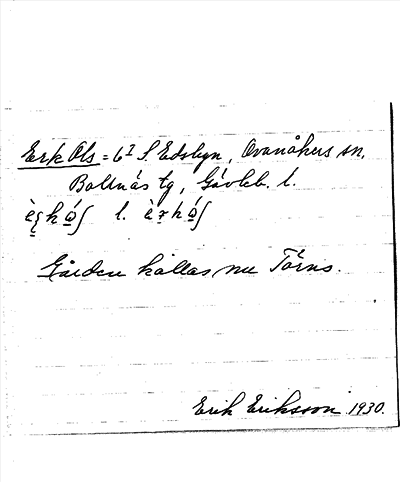 Erk Ols = 6² S. Edsbyn, Ovanåkers sn,
Bollnäs tg, Gävleb. l.
l.
Gården kallas nu Törns.
Erik Eriksson 1930.